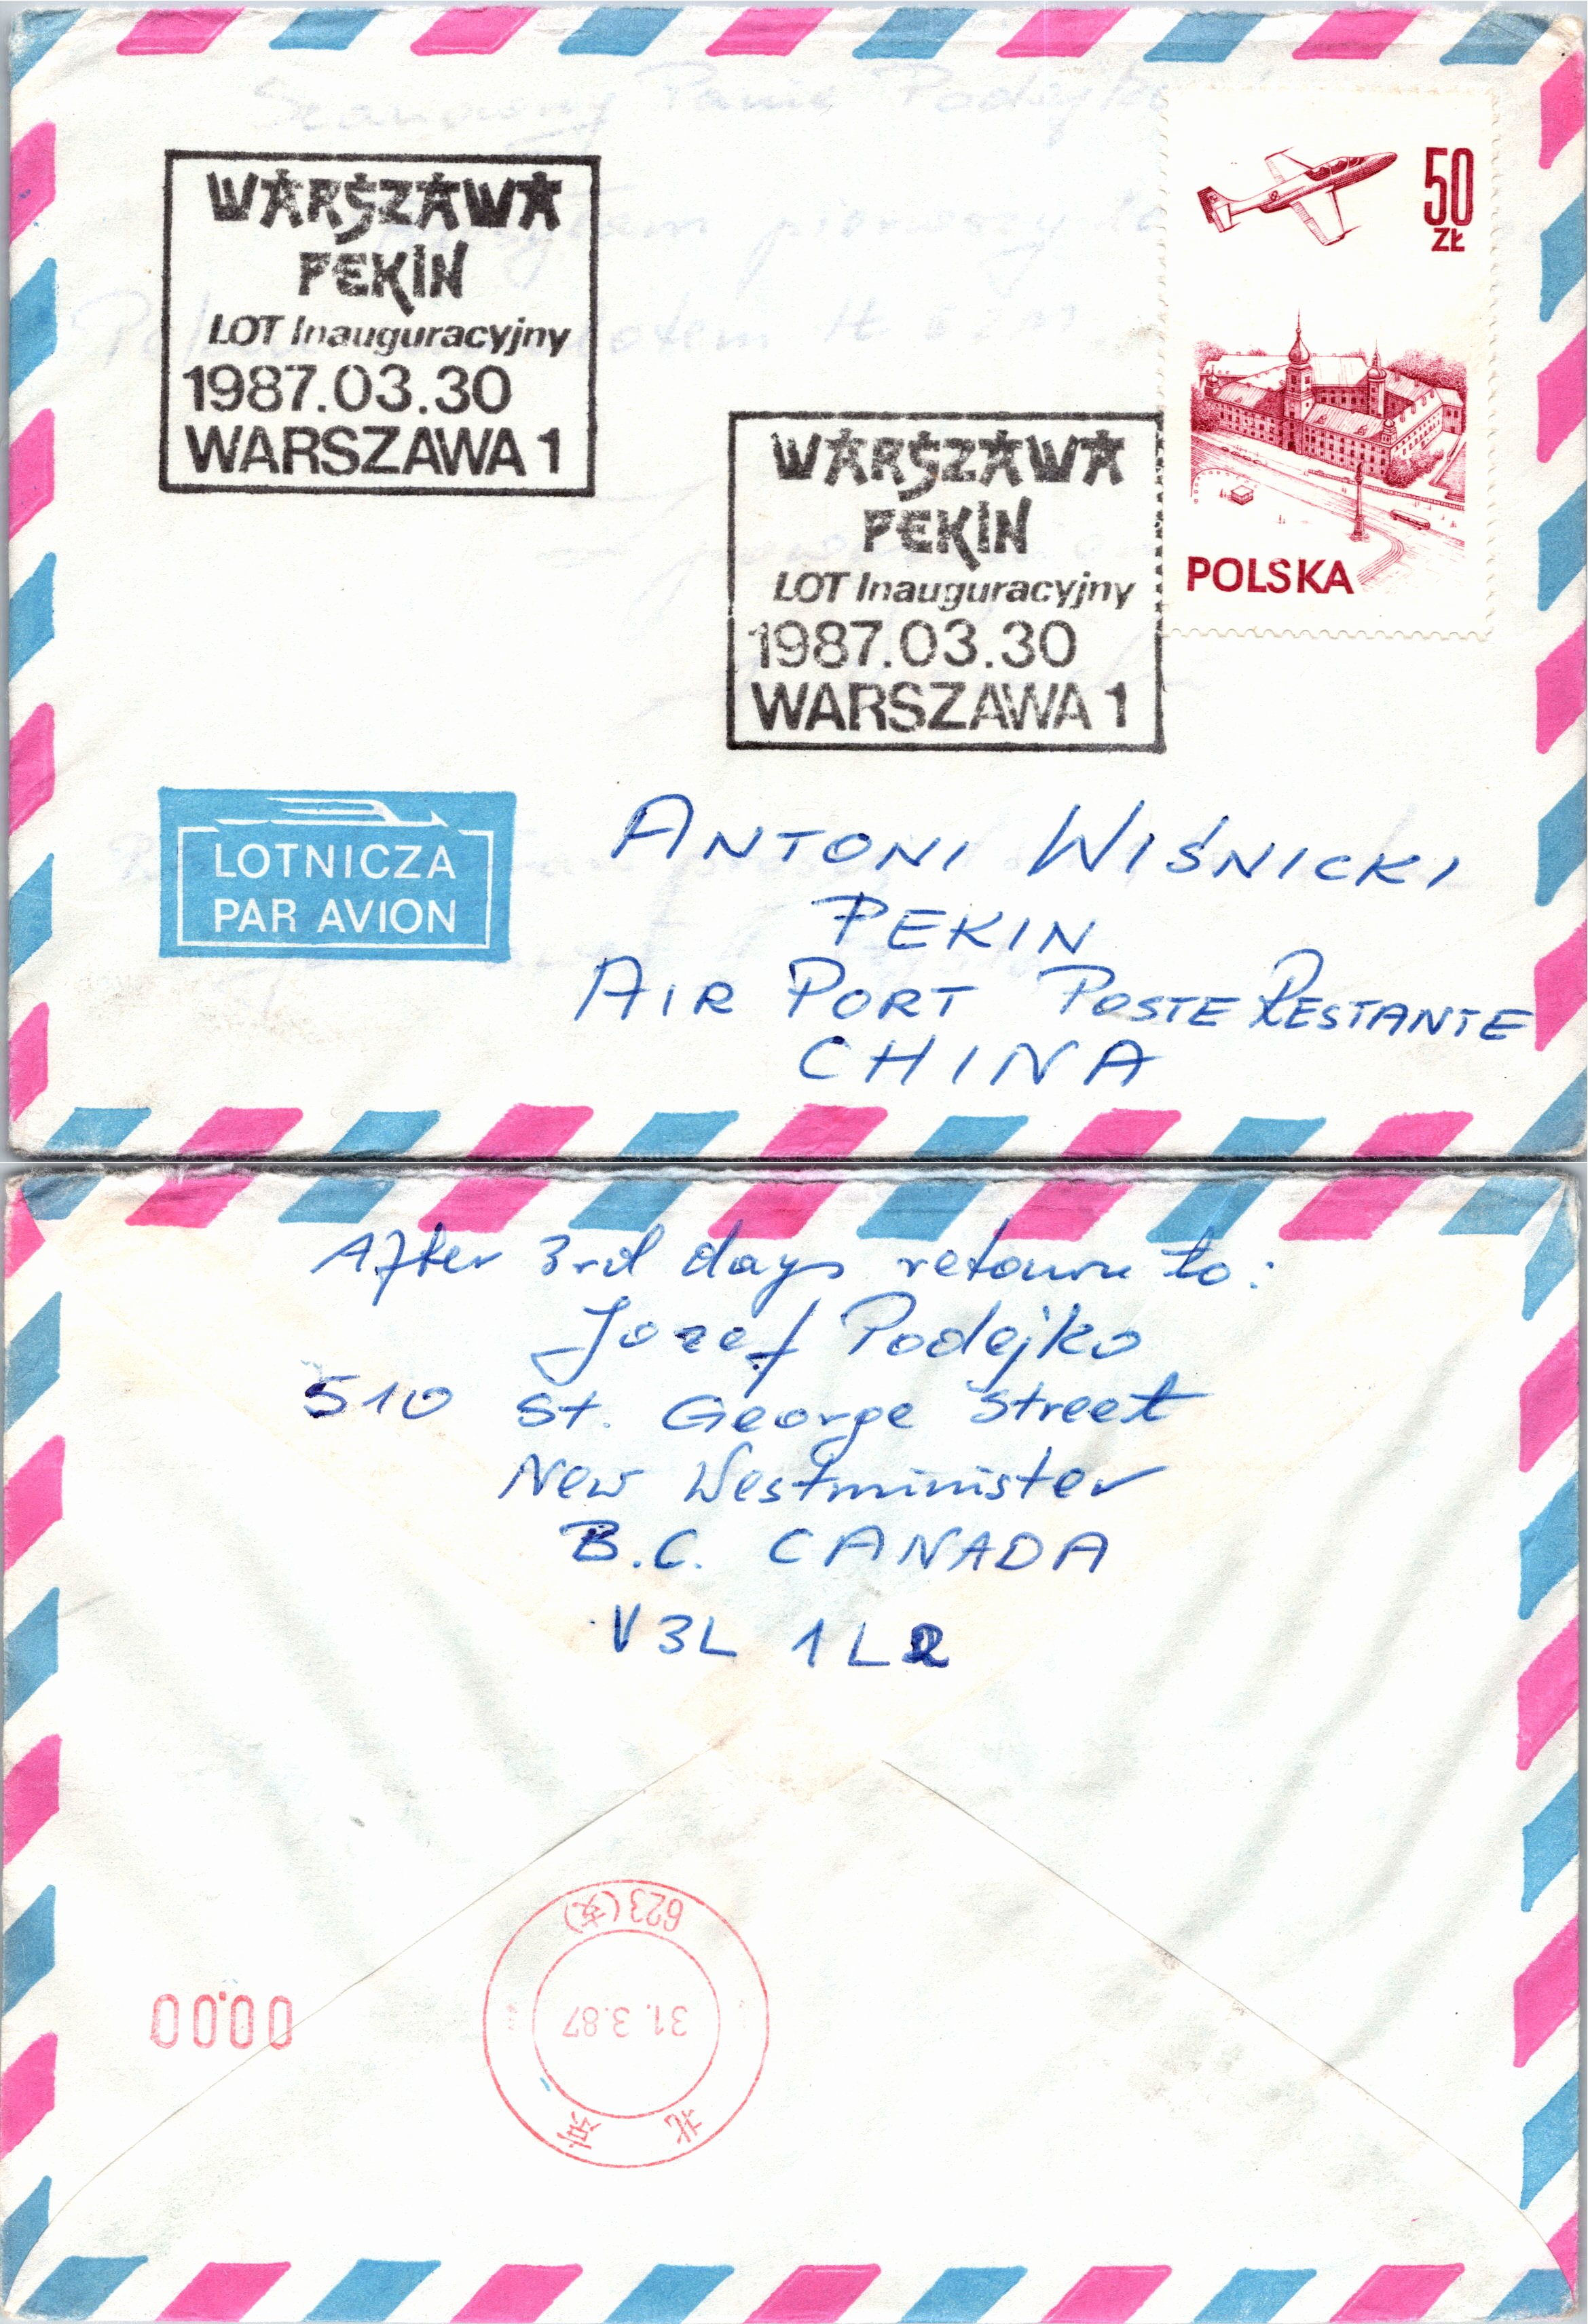 WARSZAWA
PEKIN
LOT Inauguracyjny
1987.03.30
WARSZAWA 1
50
ZŁ
POLSKA
WARSZAWA
PEKIN
LOT Inauguracyjny
1987.03.30
WARSZAWA 1
LOTNICZA
PAR AVION
ANTONI WIŚNICKI
PEKIN
AIR PORT POSTE RESTANTE
CHINA
After 3rd days retourn to:
Jozef Podejko
510 St. George Street
New Westminister
B.C. CANADA
V3L 1L2
623(支)
31.3.87
北京
00.00